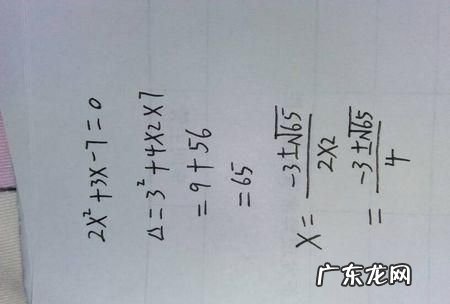 2X²+3X-7=0
Δ=3²+4X2X7
=9+56
=65
X=(-3±√65)/(2X2)
=(-3±√65)/4
广东龙网